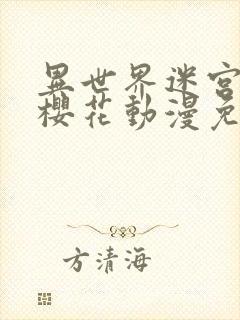 異世界迷宮
櫻花動漫免
方清海